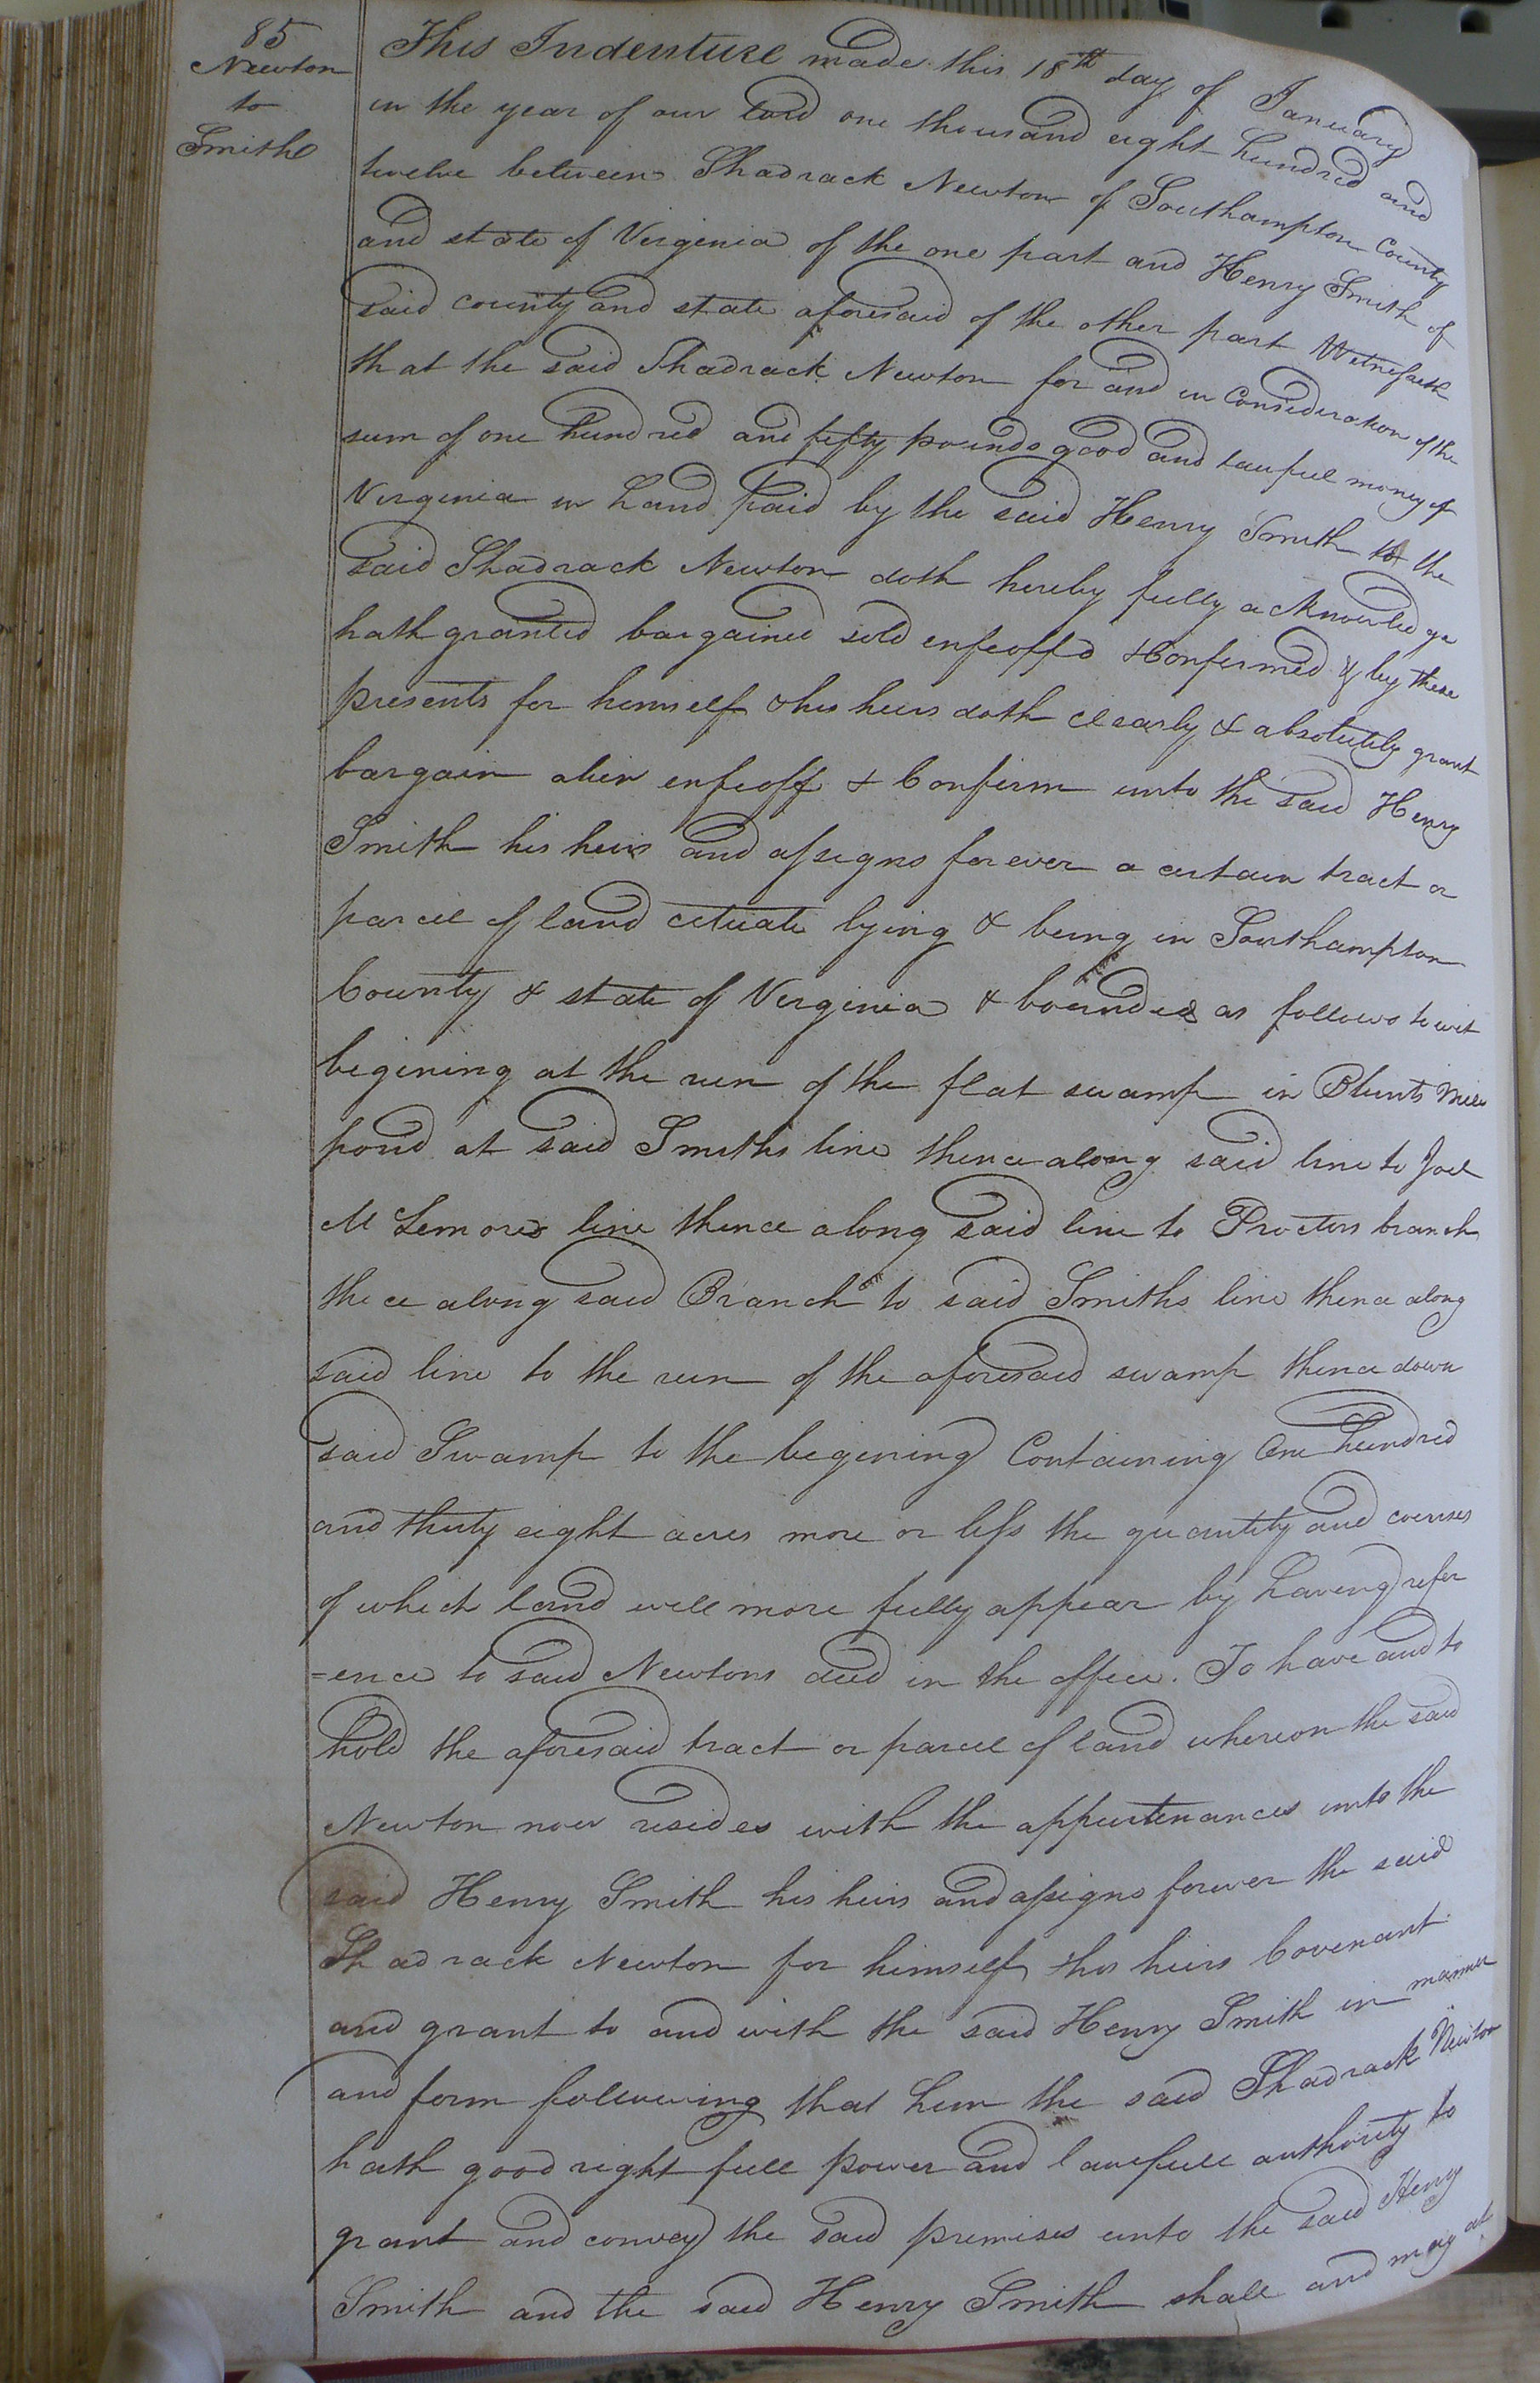 85
Newton
to
Smith
This Indenture made this 18th day of January
in the year of our Lord one thousand eight hundred and
twelve between Shadrack Newton of Southampton County
and state of Virginia of the one part and Henry Smith of
said county and state aforesaid of the other part Witnesseth
that the said Shadrack Newton for and in Consideration of the
sum of one hundred and fifty pounds good and lawfull money of
Virginia in hand paid by the said Henry Smith to the
said Shadrack Newton doth hereby fully acknowledge
hath granted bargained sold enfeoff'd & Confirmed & by these
presents for himself & his heirs doth clearly & absolutely grant
bargain alien enfeoff & Confirm unto the said Henry
Smith his heirs and assigns forever a certain tract or
parcel of land cituate lying & being in Southampton
County & state of Virginia & bounded as follows towit
begining at the run of the flat swamp in Blunts Mill
pond at said Smiths line thence along said line to Joel
M Lemores line thence along said line to Proctors branch
thece along said Branch to said Smiths line thence along
said line to the run of the aforesaid swamp thence down
said Swamp to the begining Containing One hundred
and thirty eight acres more or less the quantity and courses
of which land will more fully appear by having refer
=ence to said Newtons deed in the office. To have and to
hold the aforesaid tract or parcel of land whereon the said
Newton now resides with the appurtenances unto the
said Henry Smith his heirs and assigns forever the said
Shadrack Newton for himself & his heirs Covenant
and grant to and with the said Henry Smith in manner
and form following that him the said Shadrack Newton
hath good right full power and lawfull authority to
grant and convey the said premises unto the said Henry
Smith and the said Henry Smith shall and may at